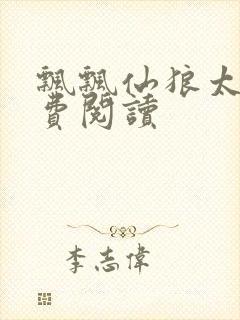 飄飄仙狼太
費閱讀
李志偉